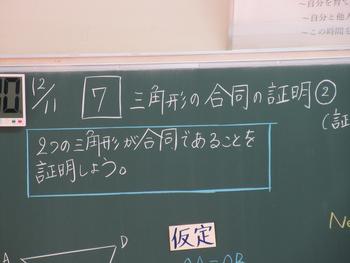 〜自分を育て
〜自分と他人
〜この時間
12/11 7 三角形の合同の証明②
(証
2つの三角形が合同であることを
証明しよう。
仮定
A
D
Ne